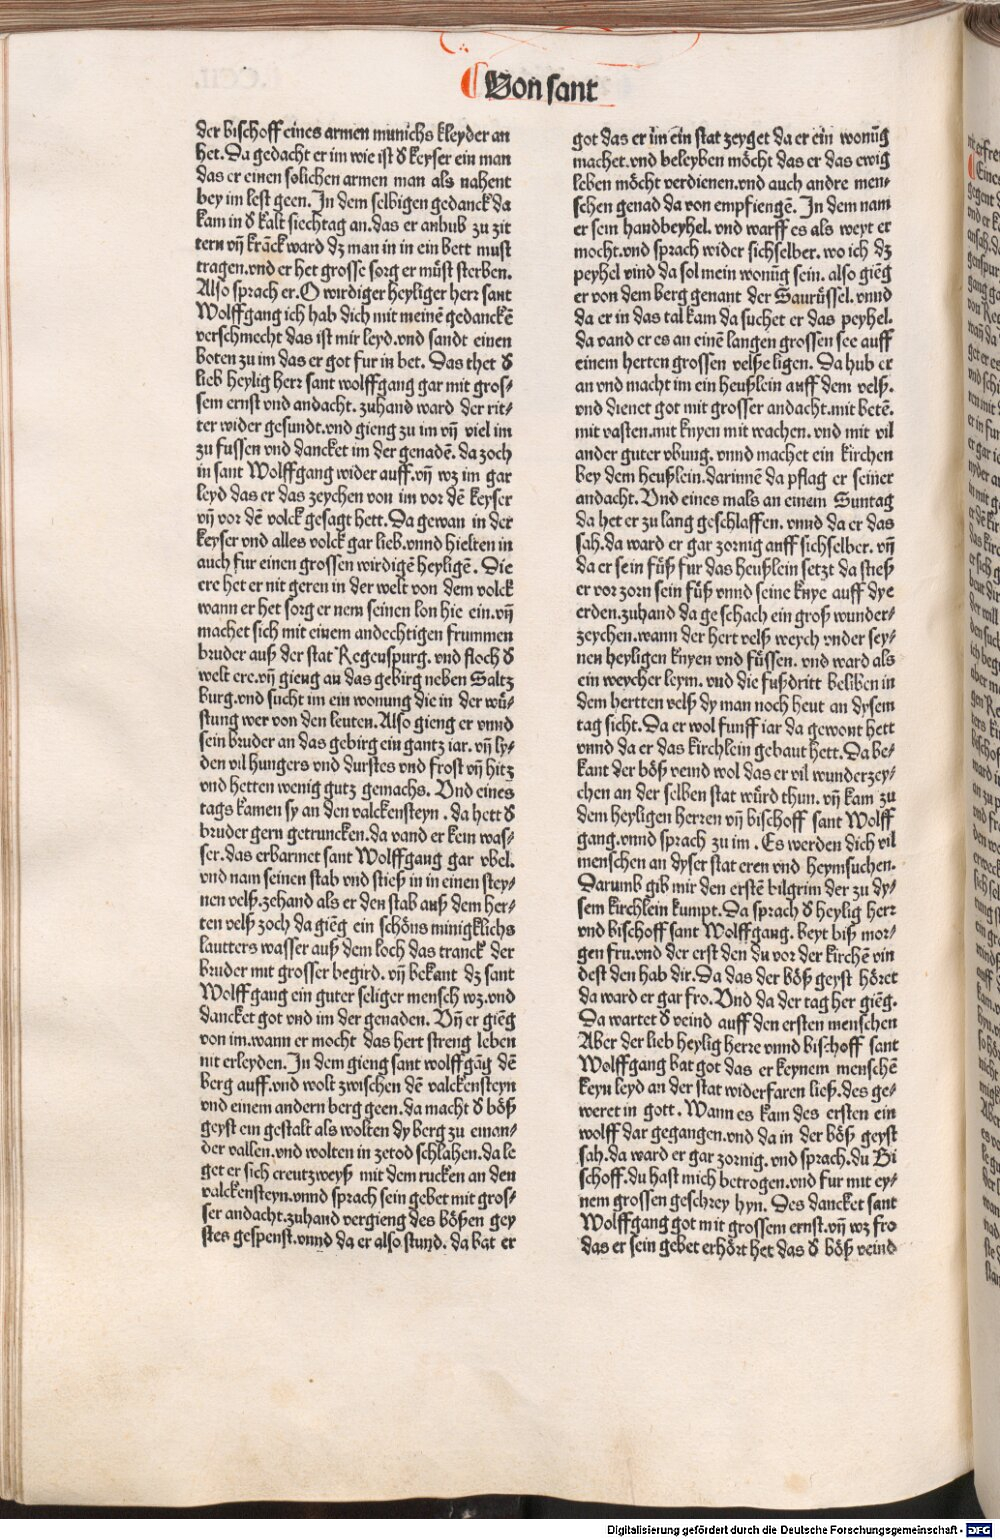 Von sant
der bischoff eines armen munichs kleyder an
het. Da gedacht er im wie ist d̕ keyser ein man
das er einen solichen armen man als nahent
bey im lest geen. In dem selbigen gedanck da
kam in d̕ kalt siechtag an. das er anhub zu zit
tern vn̄ krāck ward dz man in in ein bett must
tragen. vnd er het grosse sorg er můst sterben.
Also sprach er. O wirdiger heyliger herr sant
Wolffgang ich hab dich mit meinē gedanckē
verschmecht das ist mir leyd. vnd sandt einen
boten zu im das er got fur in bet. Das thet d̕
lieb heylig herr sant wolffgang gar mit gros⸗
sem ernst vnd andacht. zuhand ward der rit⸗
ter wider gesundt. vnd gieng zu im vn̄ viel im
zu fussen vnd dancket im der genadē. da zoch
in sant Wolffgang wider auff. vn̄ wz im gar
leyd das er das zeychen von im vor dē keyser
vn̄ vor dē volck gesagt hett. Da gewan in der
keyser vnd alles volck gar lieb. vnnd hielten in
auch fur einen grossen wirdigē heyligē. Die
ere het er nit geren in der welt von dem volck
wann er het sorg er nem seinen lon hie ein. vn̄
machet sich mit einem andechtigen frummen
bruder auß der stat Regenspurg. vnd floch d̕
welt ere. vn̄ gieng an das gebirg neben Saltz
burg. vnd sucht im ein wonung die in der wů⸗
stung wer von den leuten. Also gieng er vnnd
sein bruder an das gebirg ein gantz iar. vn̄ ly⸗
den vil hungers vnd durstes vnd frost vn̄ hitz
vnd hetten wenig gutz gemachs. Vnd eines
tags kamen sy an den valckensteyn. da hett d̕
bruder gern getruncken. da vand er kein was⸗
ser. das erbarmet sant Wolffgang gar vbel.
vnd nam seinen stab vnd stieß in in einen stey⸗
nen velß. zehand als er den stab auß dem her⸗
ten velß zoch da giēg ein schöns minigklichs
lautters wasser auß dem loch das tranck der
bruder mit grosser begird. vn̄ bekant dz sant
Wolffgang ein guter seliger mensch wz. vnd
dancket got vnd im der genaden. Vn̄ er giēg
von im. wann er mocht das hert streng leben
nit erleyden. In dem gieng sant wolffgāg dē
berg auff. vnd wolt zwischen dē valckensteyn
vnd einem andern berg geen. da macht d̕ böß
geyst ein gestalt als wolten dy berg zu einan⸗
der vallen. vnd wolten in zetod schlahen. da le
get er sich creutzweyß mit dem rucken an den
valckensteyn. vnnd sprach sein gebet mit gros⸗
ser andacht. zuhand vergieng des bößen gey
stes gespenst. vnnd da er also stund. da bat er
got das er im ein stat zeyget da er ein wonūg
machet. vnd beleyben möcht das er das ewig
leben möcht verdienen. vnd auch andre men⸗
schen genad da von empfiengē. In dem nam
er sein handbeyhel. vnd warff es als weyt er
mocht. vnd sprach wider sichselber. wo ich dz
peyhel vind da sol mein wonūg sein. also giēg
er von dem berg genant der Saurüssel. vnnd
da er in das tal kam da suchet er das peyhel.
da vand er es an einē langen grossen see auff
einem herten grossen velße ligen. Da hub er
an vnd macht im ein heußlein auff dem velß.
vnd dienet got mit grosser andacht. mit betē.
mit vasten. mit knyen mit wachen. vnd mit vil
ander guter vbung. vnnd machet ein kirchen
bey dem heußlein. darinnē da pflag er seiner
andacht. Vnd eines mals an einem Suntag
da het er zu lang geschlaffen. vnnd da er das
sah. da ward er gar zornig auff sichselber. vn̄
da er sein fůß fur das heußlein setzt da stieß
er vor zorn sein füß vnnd seine knye auff dye
erden. zuhand da geschach ein groß wunder⸗
zeychen. wann der hert velß weych vnder sey⸗
nen heyligen knyen vnd füssen. vnd ward als
ein weycher leym. vnd die fußdritt beliben in
dem hertten velß dy man noch heut an dysem
tag sicht. Da er wol funff iar da gewont hett
vnnd da er das kirchlein gebaut hett. Da be⸗
kant der böß veind wol das er vil wunderzey⸗
chen an der selben stat würd thun. vn̄ kam zu
dem heyligen herren vn̄ bischoff sant Wolff
gang. vnnd sprach zu im. Es werden dich vil
menschen an dyser stat eren vnd heymsuchen.
Darumb gib mir den erstē bilgrim der zu dy⸗
sem kirchlein kumpt. Da sprach d̕ heylig herr
vnd bischoff sant Wolffgang. beyt biß mor⸗
gen fru. vnd der erst den du vor der kirchē vin
dest den hab dir. Da das der böß geyst höret
da ward er gar fro. Vnd da der tag her giēg.
Da wartet d̕ veind auff den ersten menschen
Aber der lieb heylig herre vnnd bischoff sant
Wolffgang bat got das er keynem menschē
keyn leyd an der stat widerfaren ließ. des ge⸗
weret in gott. Wann es kam des ersten ein
wolff dar gegangen. vnd da in der böß geyst
sah. da ward er gar zornig. vnd sprach. du Bi
schoff. du hast mich betrogen. vnd fur mit ey⸗
nem grossen geschrey hyn. Des dancket sant
Wolffgang got mit grossem ernst. vn̄ wz fro
das er sein gebet erhört het das d̕ böß veind
Digitalisierung gefördert durch die Deutsche Forschungsgemeinschaft - DFG